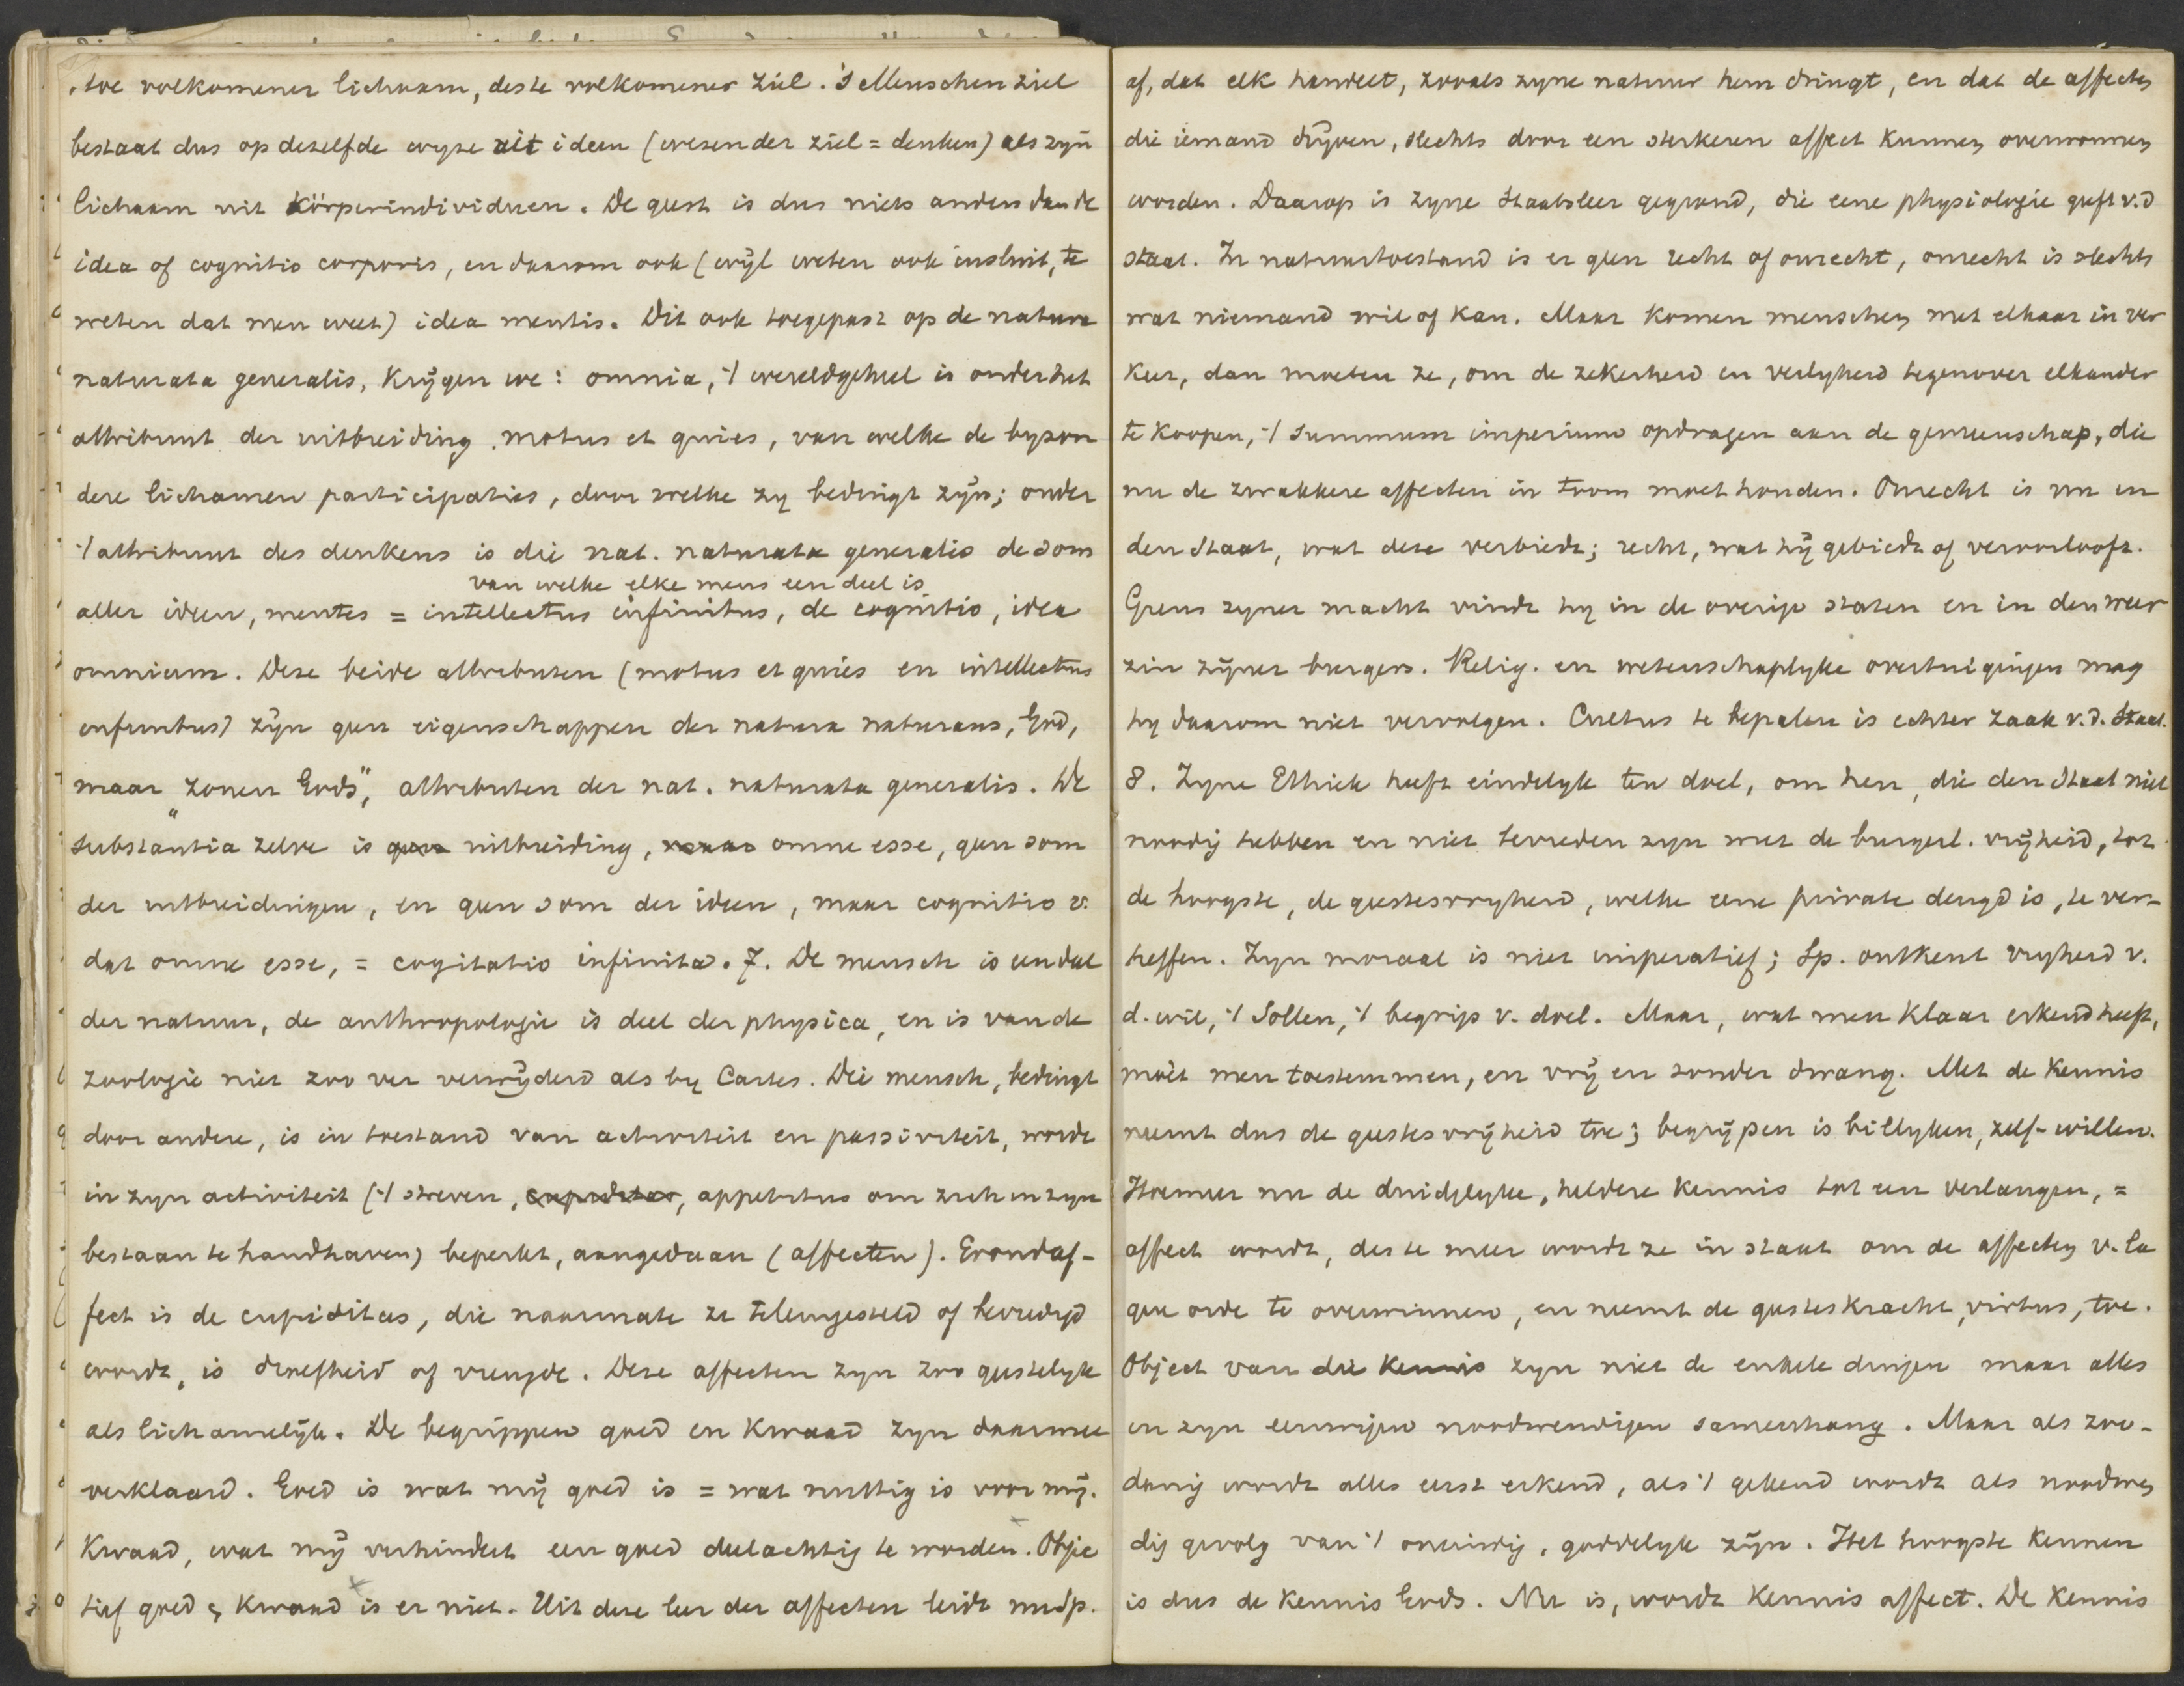 hoe volkomener lichaam, deste volkomener ziel. 's Menschen ziel
bestaat dus op deselfde wyze uit ideen (wesen der ziel = denken) als zijn
lichaam uit körperindividuen. De geest is dus niets anders dan de
idea of cognitio corporis, en daarom ook (wijl weten ook insluit, te
weten dat men weet) idea mentis. Dit ook toegepast op de natura
naturata generalis, krijgen we: omnia, 't wereldgeheel is onder het
attribuut der uitbreiding motus et quies, van welke de byzon
dere lichamen participaties, door welke zy bedingt zijn; onder
't attribuut des denkens is die nat. naturata generalis de som
van welke elke mens een deel is
aller ideen, mentes = intellectus infinitus, de cognitio, idea
omnium. Deze beide attributen (motus et quies en intellectus
infinitus) zijn geen eigenschappen der natura naturans, God,
maar "zonen Gods", attributen der nat. naturata generalis. De
substantia zelve is geen uitbreiding, maar omne esse, geen som
der uitbreidingen, en geen som der ideen, maar cognitio v.
dat omne esse, = cogitatio infinita. 7. De mensch is een deel
der natuur, de anthropologie is deel der physica, en is van de
zoologie niet zoo ver verwijderd als by Cartes. Die mensch, bedingt
door andere, is in toestand van activiteit en passiviteit, wordt
in zyn activiteit ('t streven, cupiditas, appetitus om zich in zyn
bestaan te handhaven) beperkt, aangedaan (affecten). Grondaf-
fect is de cupiditas, die naarmate ze teleurgesteld of bevredigd
wordt, is droefheid of vreugde. Deze affecten zyn zoo geestelyk
als lichamelijk. De begrippen goed en kwaad zyn daarmee
verklaard. Goed is wat mij goed is = wat nuttig is voor mij.
Kwaad, wat mij verhindert een goed deelachtig te worden. Objec
tief goed & kwaad is er niet. Uit deze leer der affecten leidt nu Sp.
af, dat elk handelt, zooals zyne natuur hem dringt, en dat de affecten
die iemand drijven, slechts door een sterkeren affect kunnen overwonnen
worden. Daarop is zyne staatsleer gegrond, die eene physiologie geeft v.d
staat. In natuurtoestand is er geen recht of onrecht, onrecht is slechts
wat niemand wil of kan. Maar komen menschen met elkaar in ver
keer, dan moeten ze, om de zekerheid en veilyheid tegenover elkander
te koopen, 't summum imperium opdragen aan de gemeenschap, die
nu de zwakkere affecten in toom moet houden. Onrecht is nu in
den staat, wat deze verbiedt; recht, wat hij gebiedt of veroorlooft.
Grens zyner macht vindt hy in de overige staten en in den weer
zin zijner burgers. Relig. en wetenschaplyke overtuigingen mag
hy daarom niet vervolgen. Cultus te bepalen is echter zaak v.d. staat.
8. Zyne Ethiek heeft eindelyk ten doel, om hen, die den staat niet
noodig hebben en niet tevreden zyn met de burgerl. vrijheid, tot
de hoogste, de geestesvryheid, welke eene private deugd is, te ver-
heffen. Zyn moraal is niet imperatief; Sp. ontkent vryheid v.
d. wil, 't Sollen, 't begrip v. doel. Maar, wat men klaar erkend heeft,
moet men toestemmen, en vrij en zonder dwang. Met de kennis
neemt dus de geestesvrijheid toe; begrijpen is billyken, zelf-willen.
Hoemeer nu de duidelyke, heldere kennis tot een verlangen, =
affect wordt, des te meer wordt ze in staat om de affecten v. la
gere orde te overwinnen, en neemt de geesteskracht, virtus, toe.
Object van die kennis zyn niet de enkele dingen maar alles
in zyn eeuwigen noodwendigen samenhang. Maar als zoo-
danig wordt alles eerst erkend, als 't gekend wordt als noodwen
dig gevolg van 't oneindig, goddelyk zijn. Het hoogste kennen
is dus de kennis Gods. Nu is, wordt kennis affect. De kennis